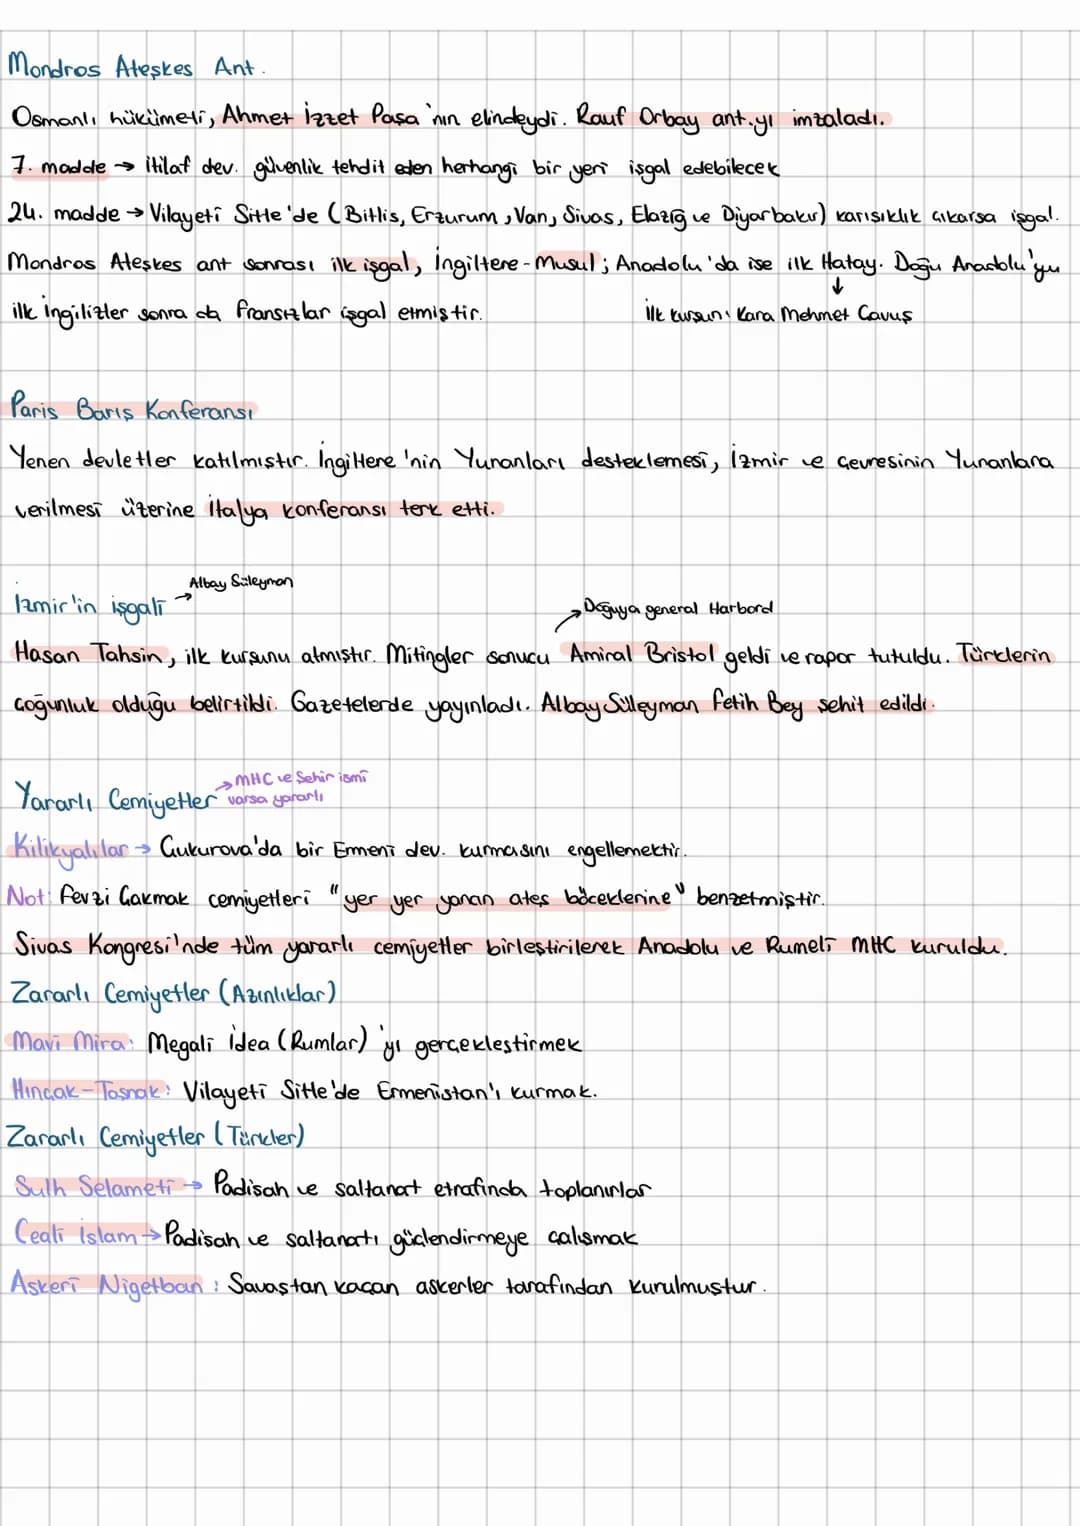 Mondros Ateşkes Ant.
Osmanlı hükümeti, Ahmet İzzet Paşa'nın elindeydi. Rauf Orbay ant.yı imzaladı.
7. madde → itilaf dev. güvenlik tehdit eden herhangi bir yeri işgal edebilecek
24. madde → Vilayeti Sitte'de (Bitlis, Erzurum, Van, Sivas, Elazığ ve Diyarbakır) karışıklık çıkarsa işgal.
Mondros Ateşkes ant sonrası ilk işgal, İngiltere-Musul; Anadolu'da ise ilk Hatay. Doğu Anadolu'yu
↓
ilk İngilizler sonra da Fransızlar işgal etmiştir.
ilk kurşun: Kara Mehmet Çavuş
Paris Barış Konferansı
Yenen devletler katılmıştır. İngiltere'nin Yunanları desteklemesi, İzmir ve çevresinin Yunanlara
verilmesi üzerine İtalya konferansı terk etti.
İzmir'in işgali → Albay Süleyman
→ Doğuya general Harbord
Hasan Tahsin, ilk kurşunu atmıştır. Mitingler sonucu Amiral Bristol geldi ve rapor tutuldu. Türklerin
çoğunluk olduğu belirtildi. Gazetelerde yayınladı. Albay Süleyman Fetih Bey şehit edildi.
Yararlı Cemiyetler → MHC ve Şehir ismi
varsa yararlı
Kilikyalılar → Çukurova'da bir Ermeni dev. kurmasını engellemektir.
Not: Fevzi Çakmak cemiyetleri "yer yer yanan ateş böceklerine" benzetmiştir.
Sivas Kongresi'nde tüm yararlı cemiyetler birleştirilerek Anadolu ve Rumeli MHC kuruldu.
Zararlı Cemiyetler (Azınlıklar)
Mavi Mira: Megali İdea (Rumlar)'yı gerçekleştirmek
Hınçak-Taşnak: Vilayeti Sitte'de Ermenistan'ı kurmak.
Zararlı Cemiyetler (Türkler)
Sulh Selameti → Padişah ve saltanat etrafında toplanırlar
Ceali İslam → Padişah ve saltanatı güçlendirmeye çalışmak
Askeri Nigetban: Savaştan kaçan askerler tarafından kurulmuştur.